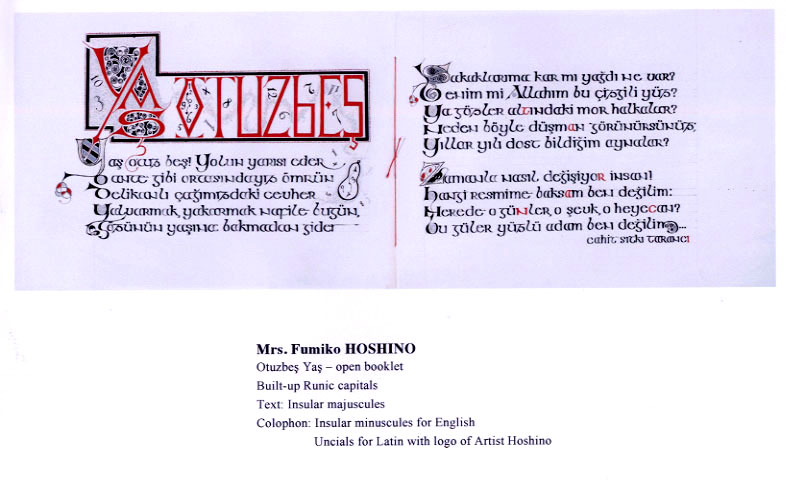 YAŞ OTUZBEŞ
Yaş otuz beş! Yolun yarısı eder
Dante gibi ortasındayız ömrün
Delikanlı çağımızdaki cevher
Yalvarmak, yakarmak nafile bugün,
Gözünün yaşına bakmadan gider
Şakaklarıma kar mı yağdı ne var?
Benim mi Allahım bu çizgili yüz?
Ya gözler altındaki mor halkalar?
Neden böyle düşman görünürsünüz,
Yıllar yılı dost bildiğim aynalar?
Zamanla nasıl değişiyor insan!
Hangi resmime baksam ben değilim:
Nerede o günler, o şevk, o heyecan?
Bu güler yüzlü adam ben değilim...
cahit sıtkı tarancı
Mrs. Fumiko HOSHINO
Otuzbeş Yaş – open booklet
Built-up Runic capitals
Text: Insular majuscules
Colophon: Insular minuscules for English
Uncials for Latin with logo of Artist Hoshino